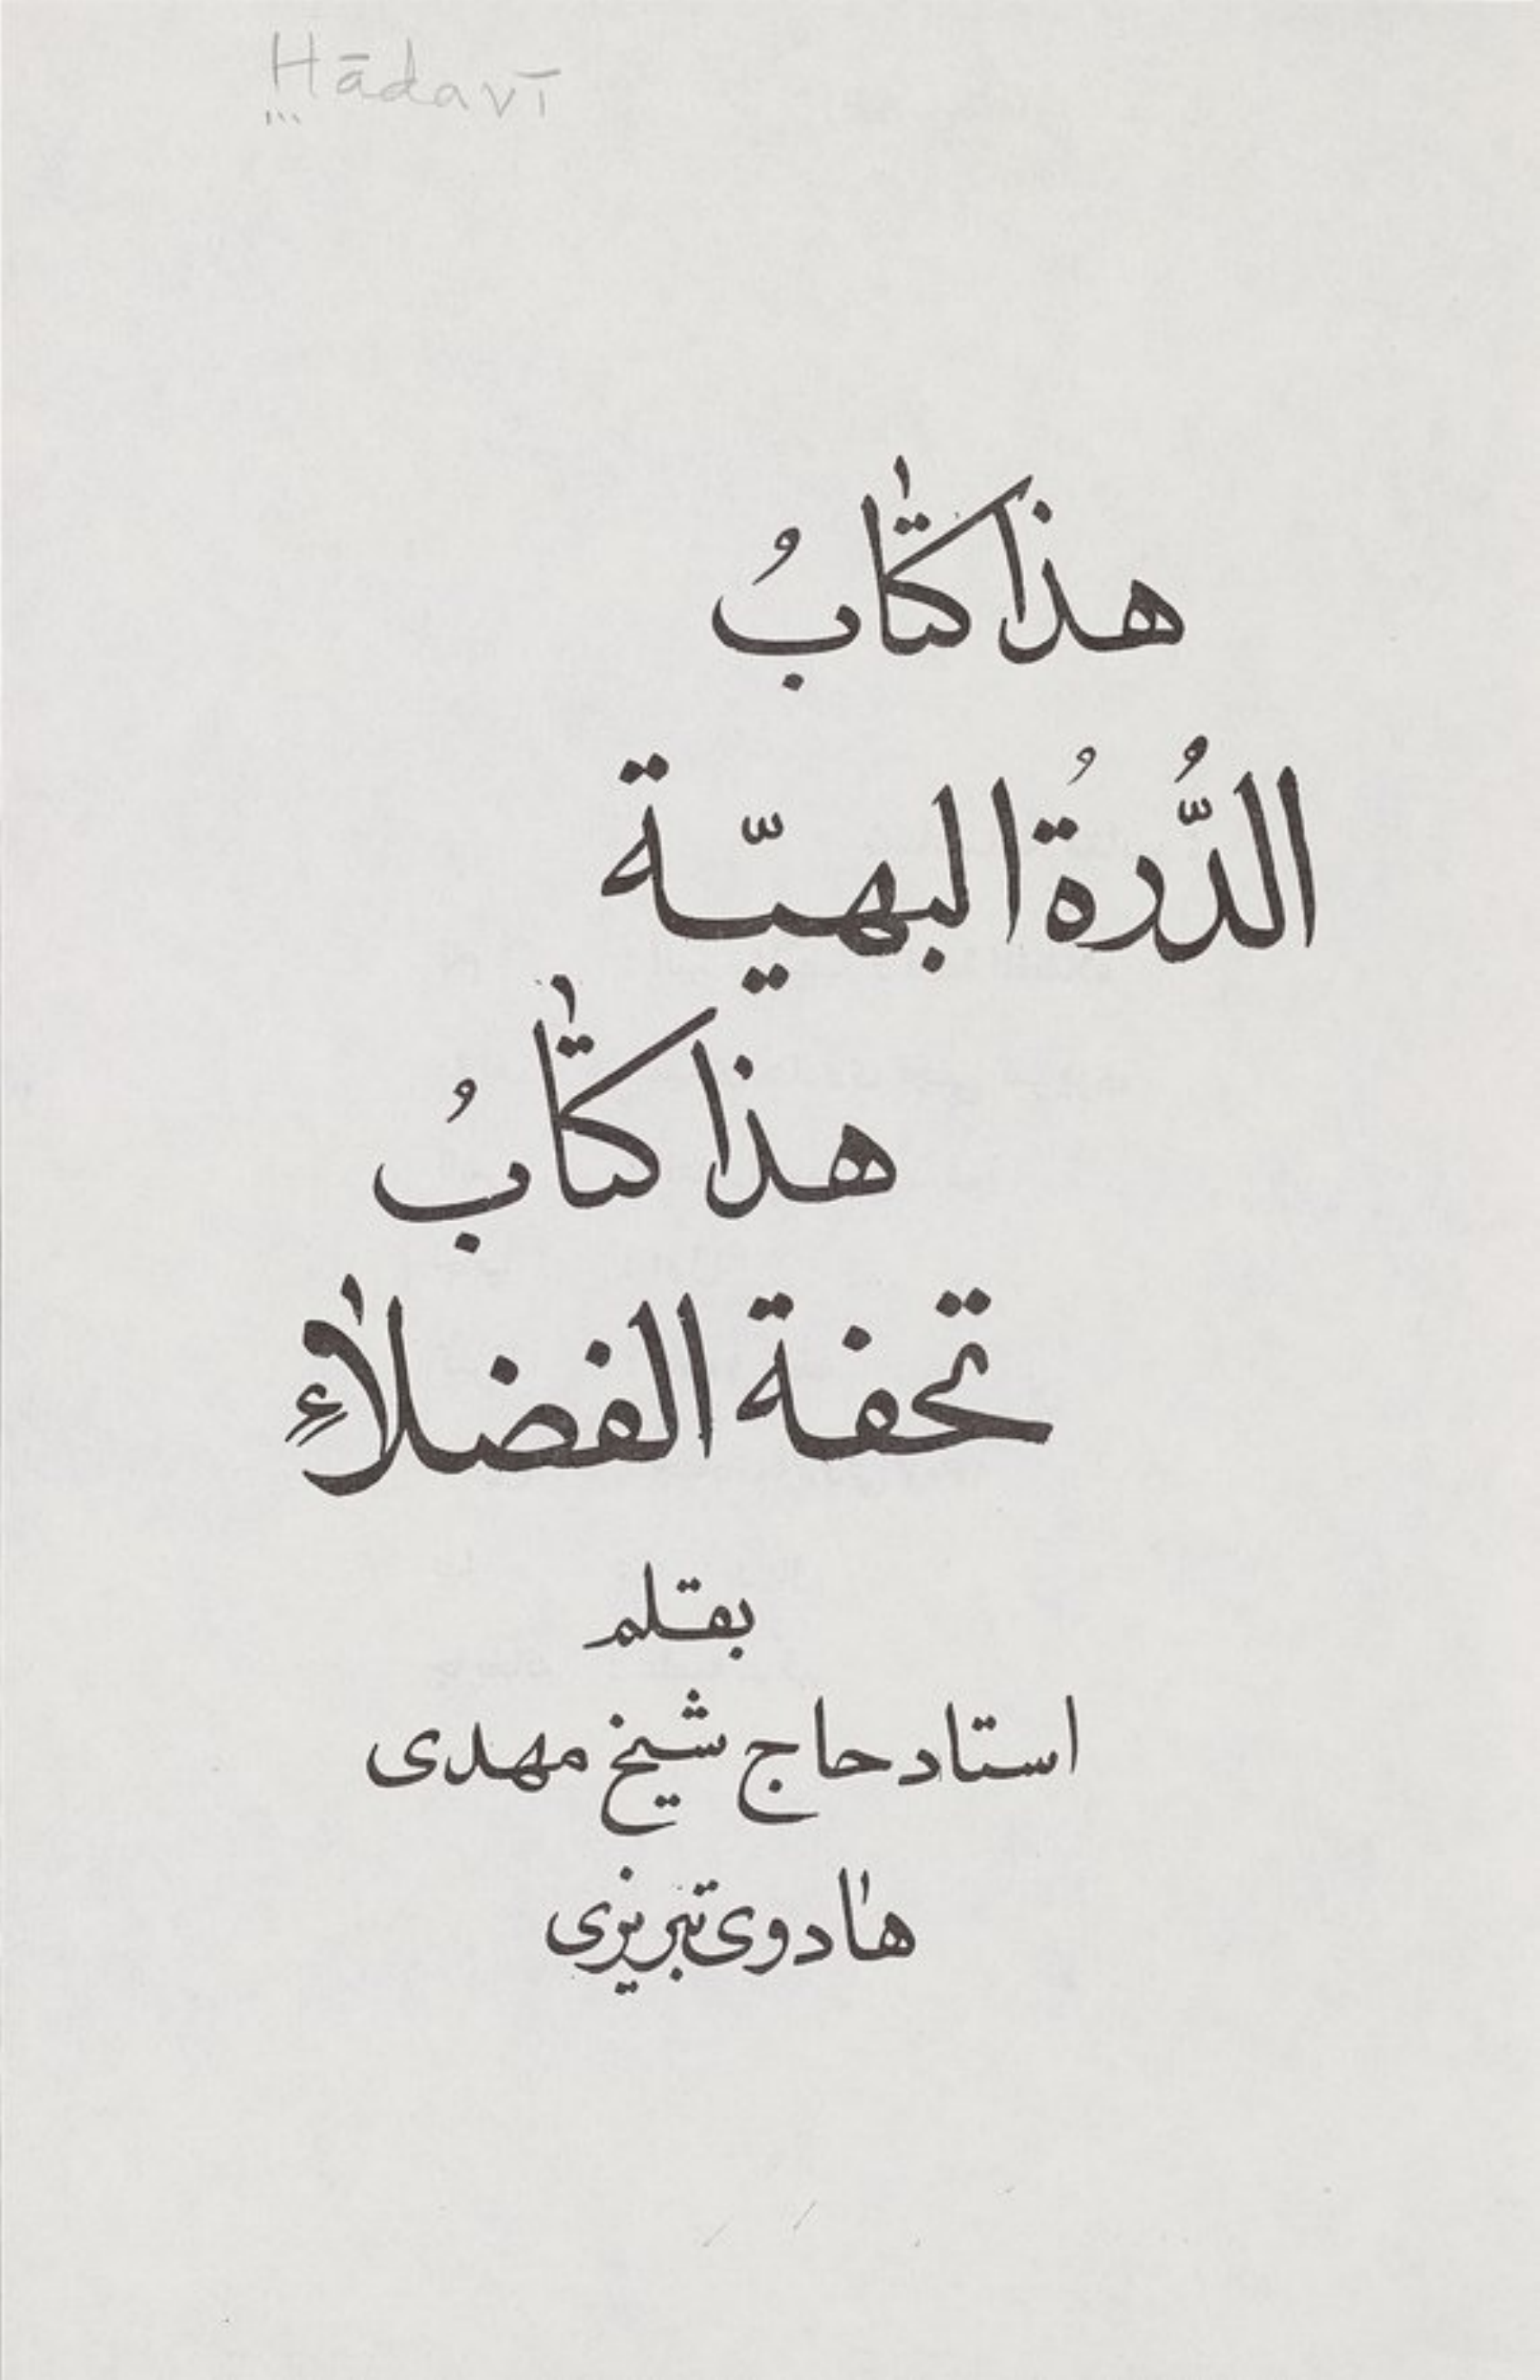 Hādavī
هذا كتابُ
الدُّرةُ البهيّة
هذا كتابُ
تحفة الفضلاءِ
بقلم
استاد حاج شيخ مهدى
هادوى تبريزى